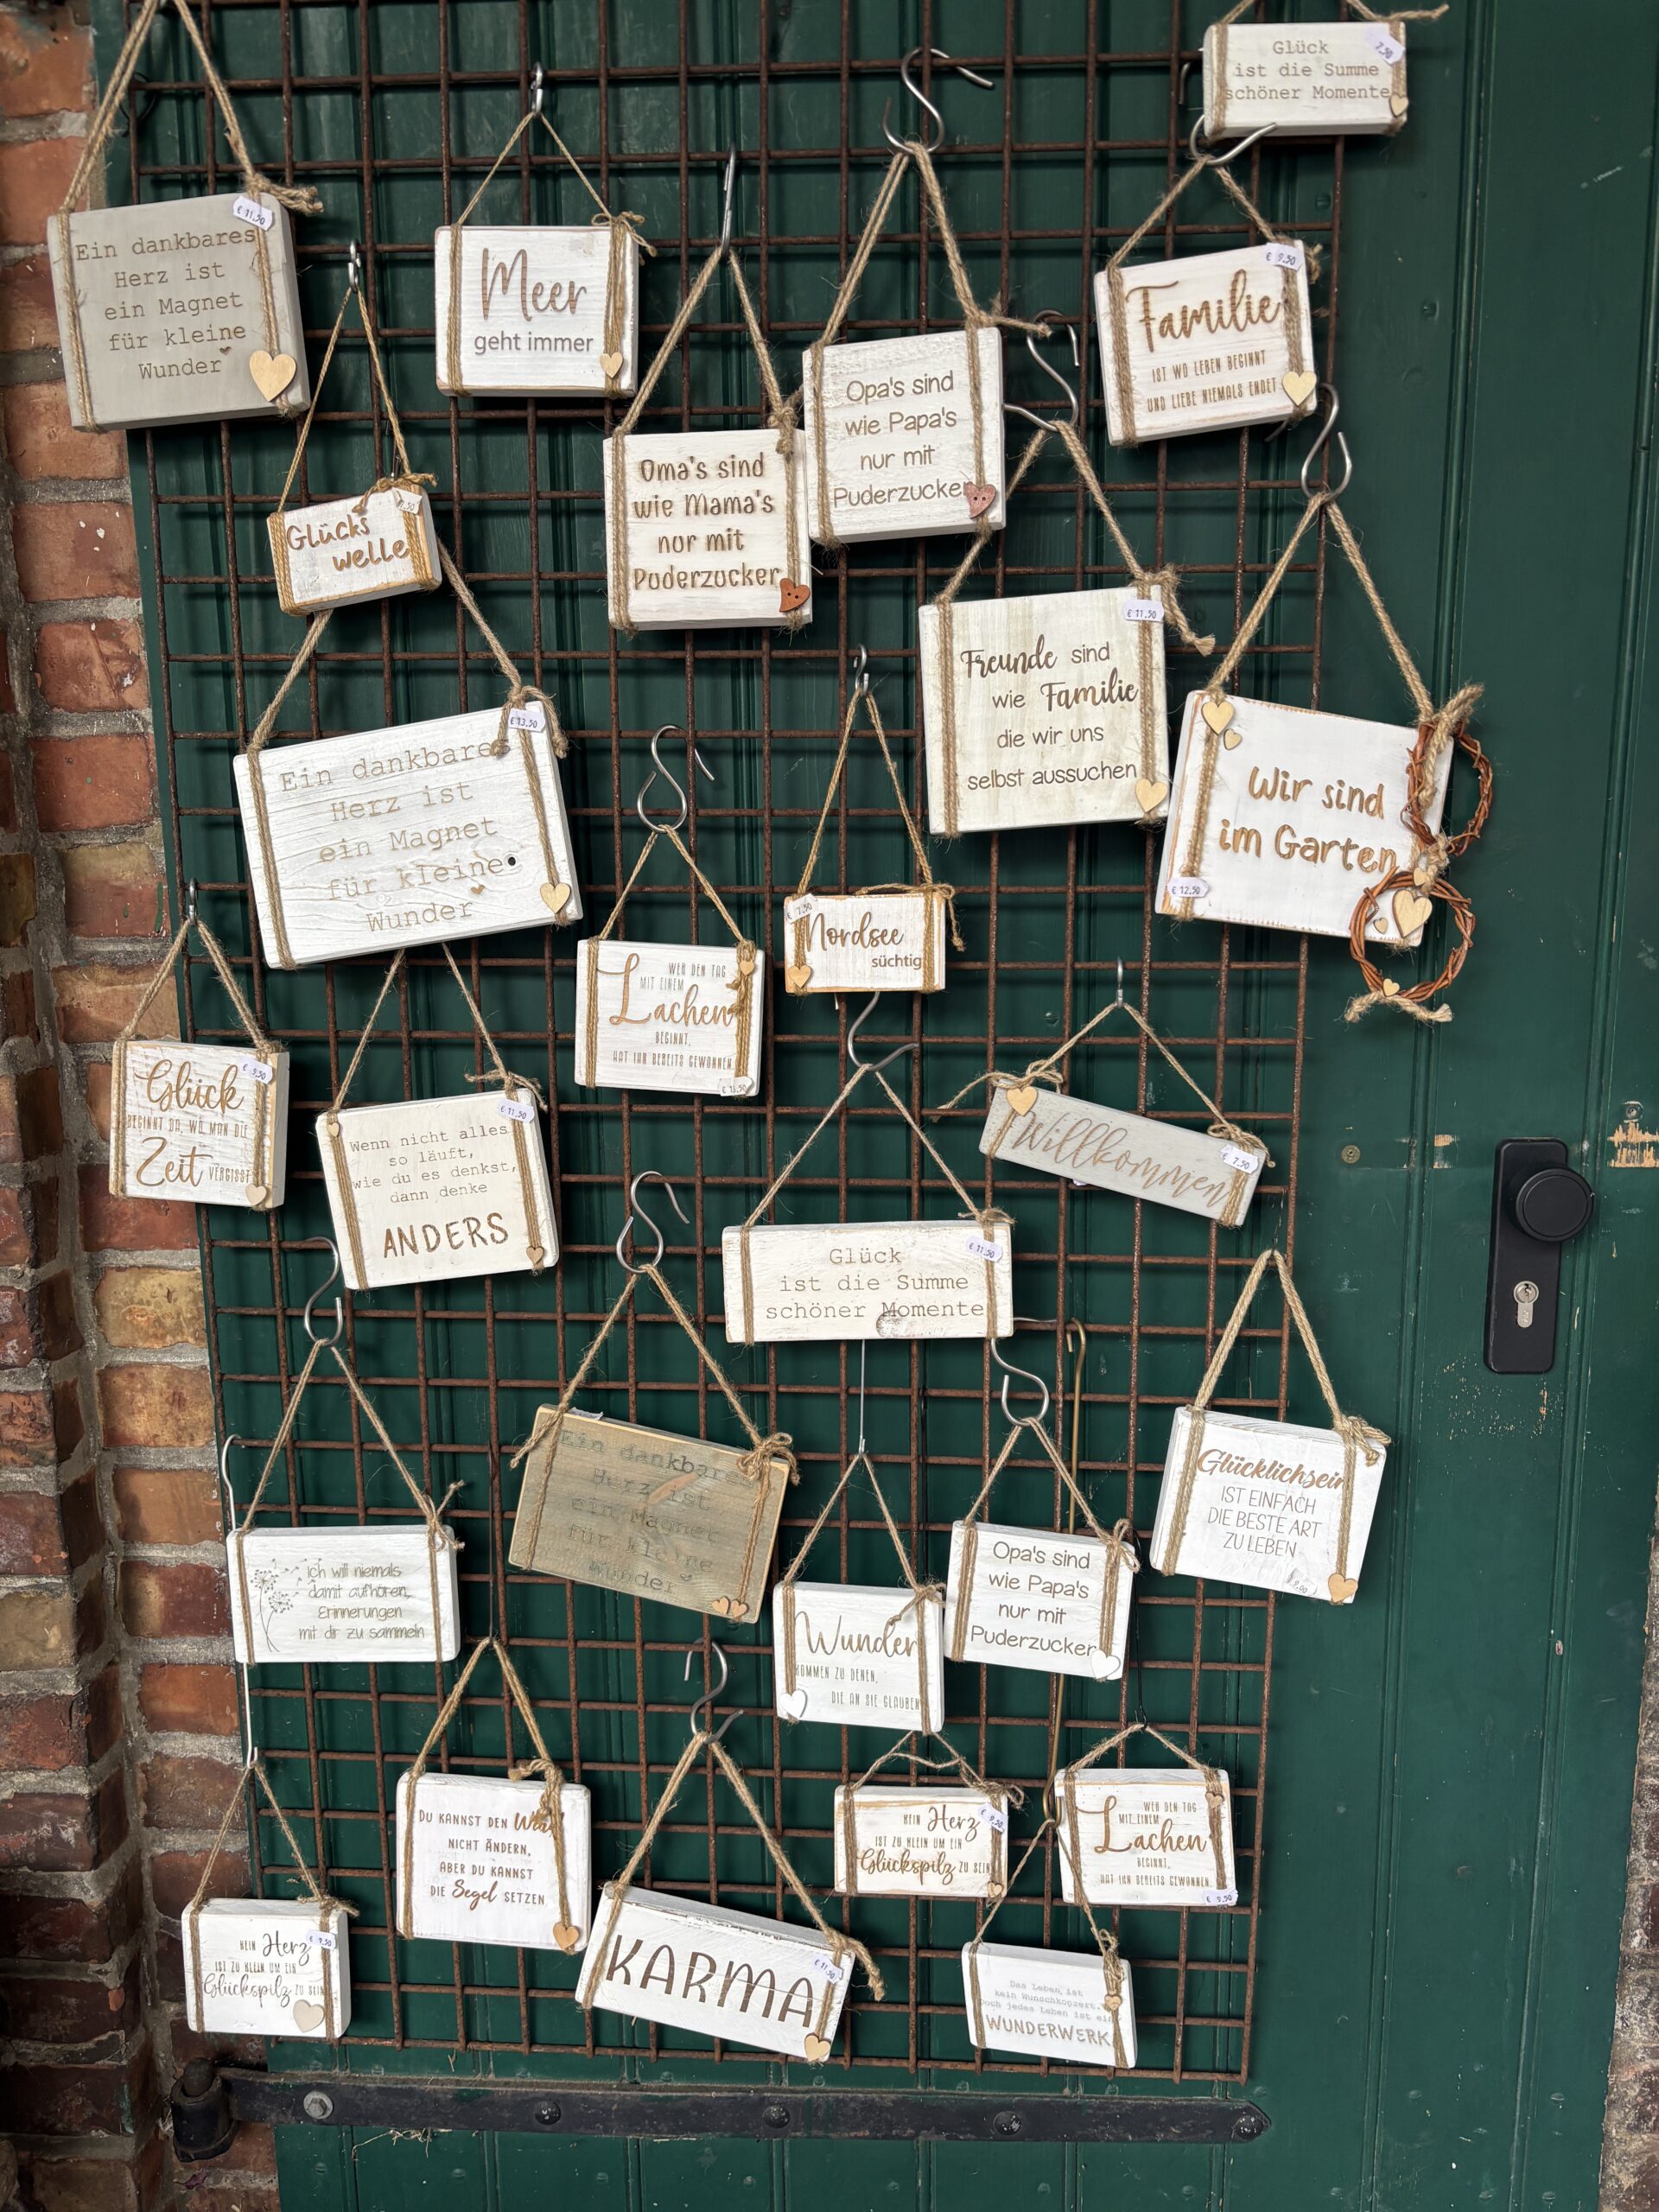 Glück
ist die Summe
schöner Momente
7,50
€ 11,50
Ein dankbares
Herz ist
ein Magnet
für kleine
Wunder
Meer
geht immer
€ 9,50
Familie
IST WO LEBEN BEGINNT
UND LIEBE NIEMALS ENDET
Opa's sind
wie Papa's
nur mit
Puderzucker
Oma's sind
wie Mama's
nur mit
Puderzucker
Glücks
welle
€ 11,50
Freunde sind
wie Familie
die wir uns
selbst aussuchen
Wir sind
im Garten
€ 12,50
€ 13,50
Ein dankbares
Herz ist
ein Magnet
für kleine
Wunder
€ 7,50
Nordsee
süchtig
WER DEN TAG
MIT EINEM
Lachen
BEGINNT,
HAT IHN BEREITS GEWONNEN
€ 9,50
Glück
BEGINNT DA, WO MAN DIE
Zeit VERGISST
€ 11,50
Wenn nicht alles
so läuft,
wie du es denkst,
dann denke
ANDERS
Willkommen
€ 7,50
€ 11,50
Glück
ist die Summe
schöner Momente
Ein dankbares
Herz ist
ein Magnet
für kleine
Wunder
Glücklichsein
IST EINFACH
DIE BESTE ART
ZU LEBEN
Ich will niemals
damit aufhören,
Erinnerungen
mit dir zu sammeln
Opa's sind
wie Papa's
nur mit
Puderzucker
Wunder
KOMMEN ZU DENEN,
DIE AN SIE GLAUBEN
DU KANNST DEN Wind
NICHT ÄNDERN,
ABER DU KANNST
DIE Segel SETZEN
KEIN Herz
€ 9,50
IST ZU KLEIN UM EIN
Glückspilz ZU SEIN
WER DEN TAG
MIT EINEM
Lachen
BEGINNT,
HAT IHN BEREITS GEWONNEN
€ 9,50
KEIN Herz
€ 9,50
IST ZU KLEIN UM EIN
Glückspilz ZU SEIN
KARMA
€ 11,50
Das Leben ist
kein Wunschkonzert.
Doch jedes Leben ist ein
WUNDERWERK